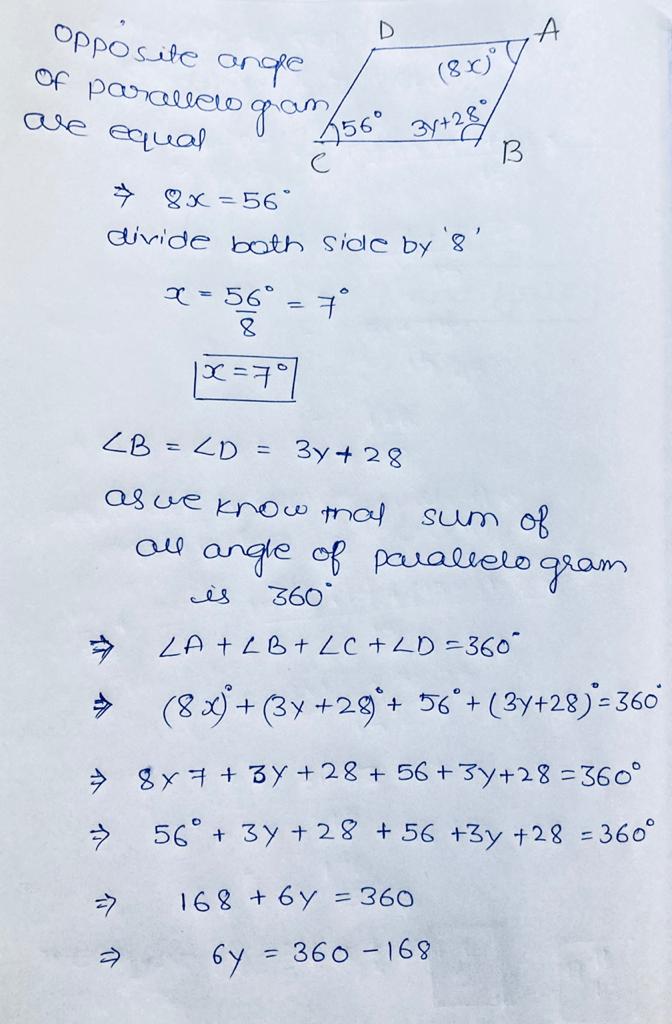 opposite angle
of parallelogram
are equal
D
A
(8x)°
56°
3y+28°
C
B
⇒ 8x = 56°
divide both side by '8'
x = 56°/8 = 7°
x = 7°
∠B = ∠D = 3y + 28
as we know that sum of
all angle of parallelogram
is 360°
⇒ ∠A + ∠B + ∠C + ∠D = 360°
⇒ (8x)° + (3y + 28)° + 56° + (3y+28)° = 360°
⇒ 8 x 7 + 3y + 28 + 56 + 3y + 28 = 360°
⇒ 56° + 3y + 28 + 56 + 3y + 28 = 360°
⇒ 168 + 6y = 360
⇒ 6y = 360 - 168